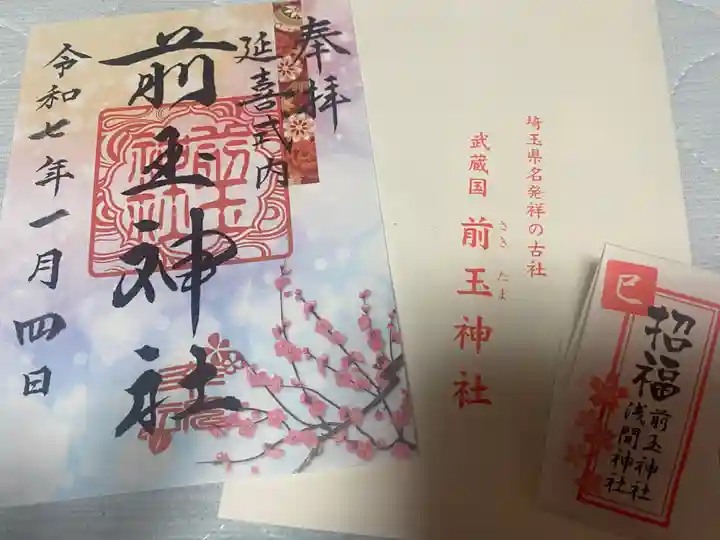 奉拝
延喜式内
前玉神社
令和七年一月四日
前玉
神社
埼玉県名発祥の古社
武蔵国 前玉神社
さきたま
巳
招福
前玉神社
浅間神社